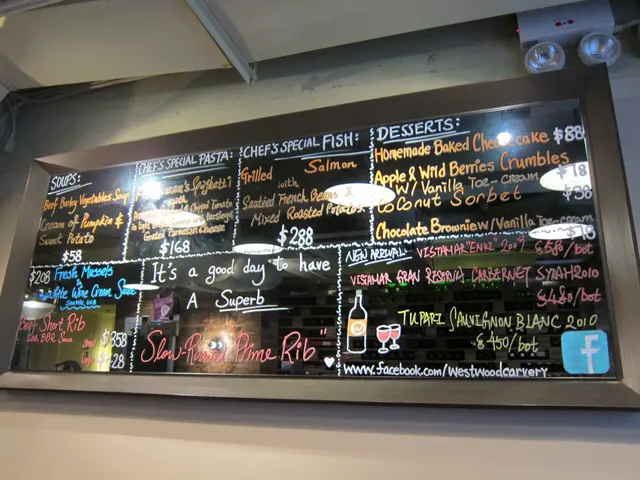 SOUPS:
Beef Barley Vegetables Soup
Cream of Pumpkin &
Sweet Potato
$58
CHEF'S SPECIAL PASTA:
Spaghetti
Tomato
Parsley
Grated Parmesan Cheese
$168
CHEF'S SPECIAL FISH:
Grilled Salmon
with
Sauteed French Beans &
Mixed Roasted Potatoes
$288
DESSERTS:
Homemade Baked Cheesecake $88
Apple & Wild Berries Crumbles
W/ Vanilla Ice-Cream
Coconut Sorbet
Chocolate Brownie w/ Vanilla Ice-Cream
$208 Fresh Mussels
White Wine Cream Sauce
Beef Short Rib
BBQ Sauce
It's a good day to have
A Superb
Slow-Roasted Prime Rib"
NEW ARRIVAL: VISTAMAR "ENKI" 2009 /bot
VISTAMAR GRAN RESERVA CABERNET SYRAH 2010
$480/bot
TUPARI SAUVIGNON BLANC 2010
$450/bot
www.facebook.com/westwoodcarvery
f